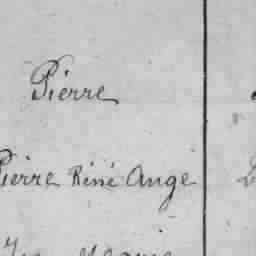 Pierre
Pierre Réné Ange